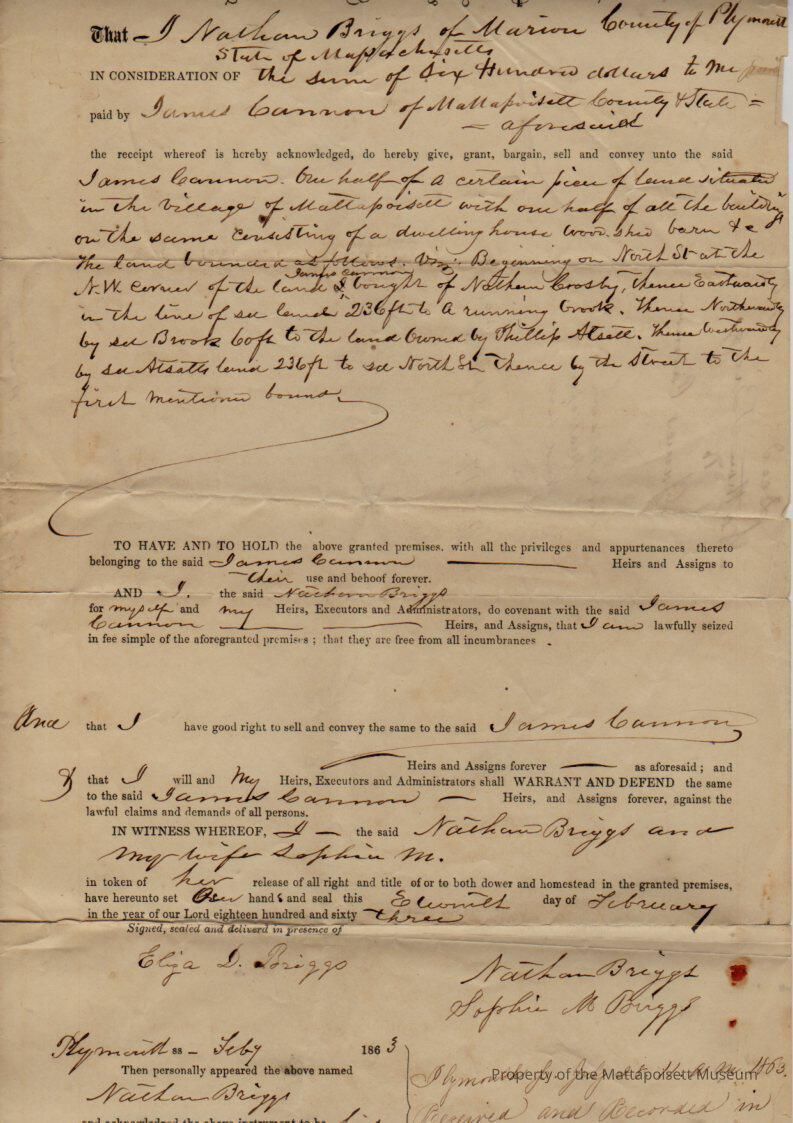 That - I Nathan Briggs of Marion County of Plymouth
State of Massachusetts
IN CONSIDERATION OF the sum of Six Hundred dollars to me
paid by James Cannon of Mattapoisett County & State =
= aforesaid
the receipt whereof is hereby acknowledged, do hereby give, grant, bargain, sell and convey unto the said
James Cannon. One half of a certain piece of land situated
in the Village of Mattapoisett with one half of all the buildings
on the same consisting of a dwelling house wood shed barn &c
The land bounded as follows. Viz. Beginning on North St at the
James Cannon
N.W. corner of the land I bought of Nathan Crosby, thence Eastwardly
in the line of sd land 236ft to a running brook. Thence Northwardly
by sd Brook 60ft to the land owned by Phillip Atsatt. Thence westwardly
by sd Atsatts land 236ft to sd North St. Thence by the street to the
first mentioned bound
TO HAVE AND TO HOLD the above granted premises, with all the privileges and appurtenances thereto
belonging to the said James Cannon Heirs and Assigns to
their use and behoof forever.
AND I. the said Nathan Briggs
for myself and my Heirs, Executors and Administrators, do covenant with the said James
Cannon Heirs, and Assigns, that I am lawfully seized
in fee simple of the aforegranted premises ; that they are free from all incumbrances .
And that I have good right to sell and convey the same to the said James Cannon
Heirs and Assigns forever as aforesaid ; and
that I will and My Heirs, Executors and Administrators shall WARRANT AND DEFEND the same
to the said James Cannon - Heirs, and Assigns forever, against the
lawful claims and demands of all persons.
IN WITNESS WHEREOF, I - the said Nathan Briggs and
my wife Sophia M.
in token of her release of all right and title of or to both dower and homestead in the granted premises,
have hereunto set Our hands and seal this Eleventh day of February
in the year of our Lord eighteen hundred and sixty three
Signed, sealed and deliverd in presence of
Eliza D. Briggs
Nathan Briggs
Sophia M Briggs
Plymouth ss - Feby 1863
Then personally appeared the above named
Nathan Briggs
and acknowledged the above instrument to be
Plymouth 1863.
Received and Recorded in
Property of the Mattapoisett Museum